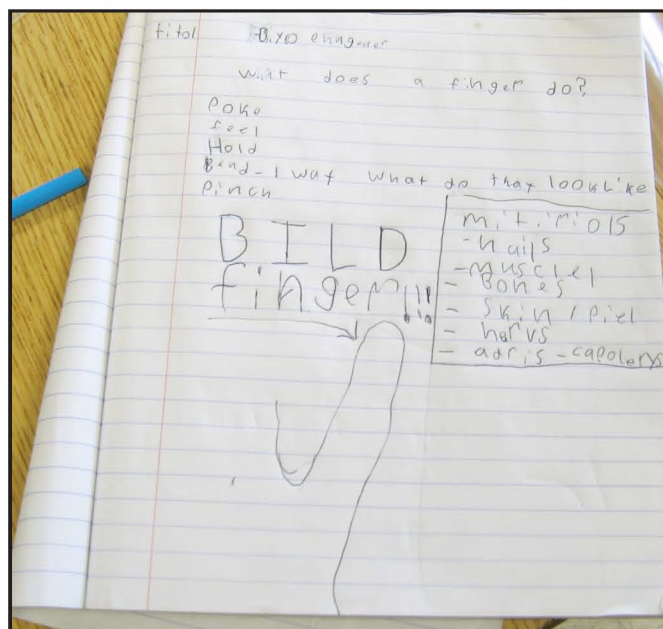 titol Biyo enngener
what does a finger do?
Poke
feel
Hold
Bend - 1 way what do thay look like
Pinch
BILD
finger!!!
mitiriols
- nails
- musclel
- Bones
- skin / piel
- narvs
- adris - capolerys